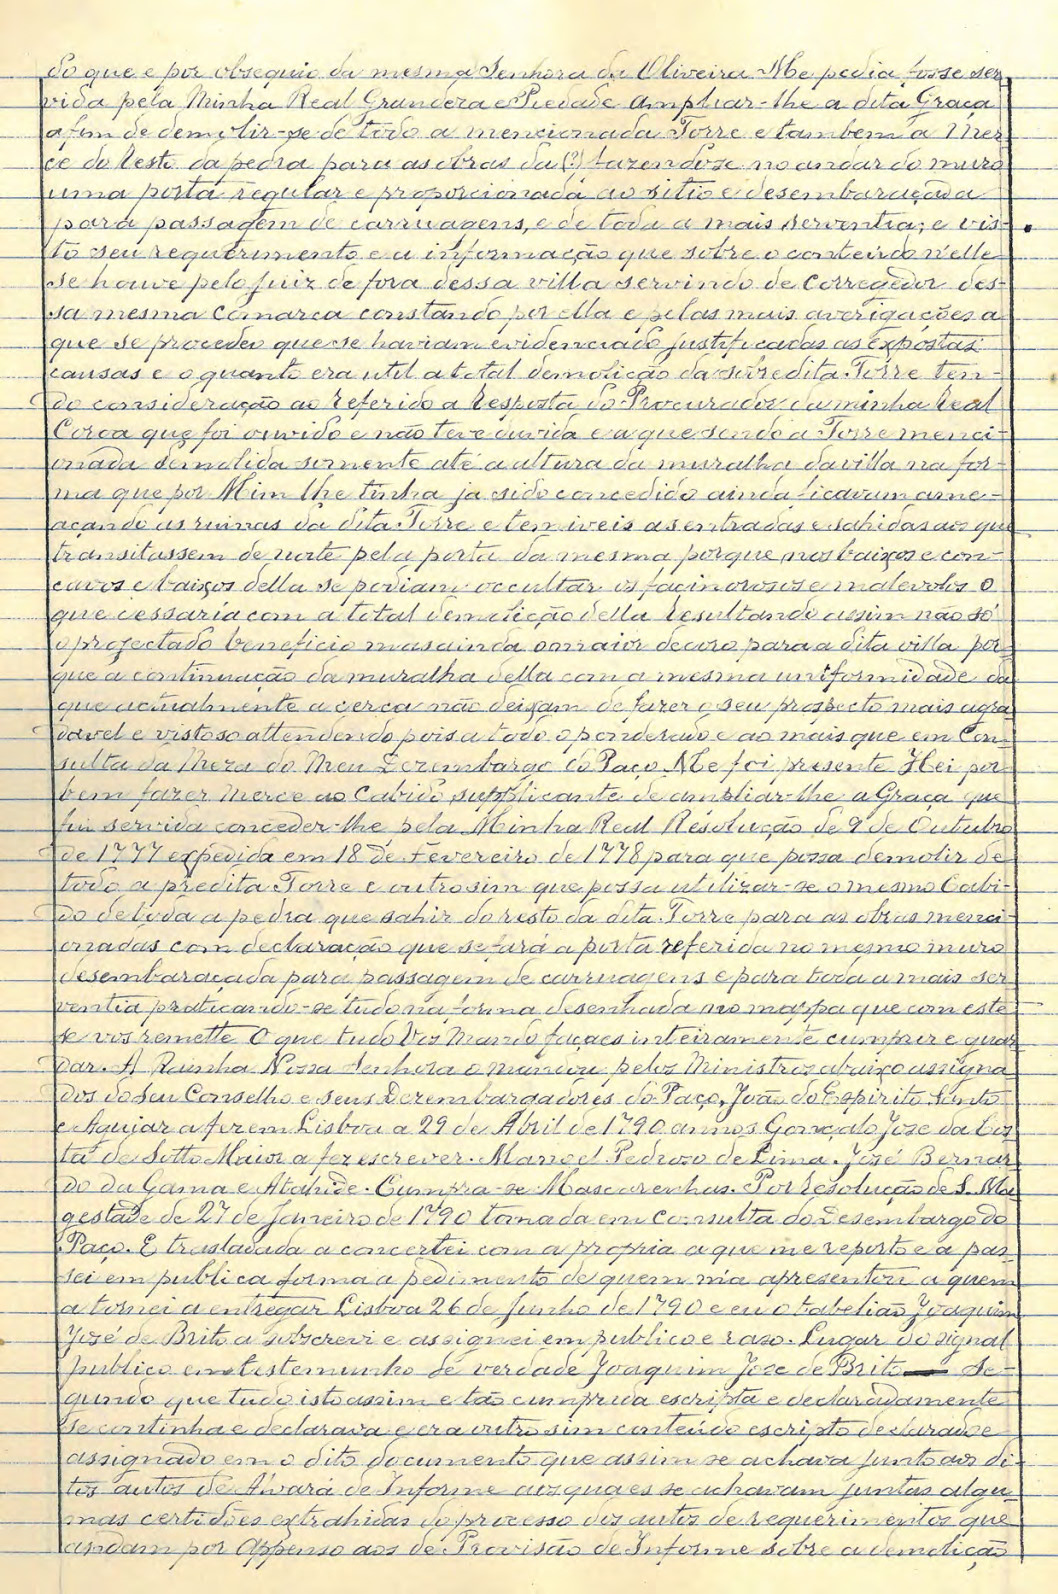 do que e por obsequio da mesma Senhora da Oliveira Me pedia fosse ser
vida pela Minha Real Grandeza e Piedade ampliar-lhe a dita Graça
afim de demolir-se de todo a mencionada Torre e tambem a Mer
cê do resto da pedra para as obras da (?) fazendose no andar do muro
uma porta regular e proporcionada ao sitio e desembaraçada
para passagem de carruagens, e de toda a mais serventia; e vis-
to seu requerimento e a informação que sobre o conteúdo n'elle
se houve pelo Juiz de fora dessa villa servindo de Corregedor des-
sa mesma comarca constando por ella e pelas mais averigações a
que se procedeo que se haviam evidenciado justificadas as expostas
causas e o quanto era util a total demolição da sobredita Torre ten-
do consideração ao referido a resposta do Procurador da minha Real
Coroa que foi ouvido e não teve duvida e a que sendo a Torre menci-
onada demolida somente até a altura da muralha da villa na for-
ma que por Mim lhe tinha ja sido concedido ainda ficavam ame-
açando as ruinas da dita Torre e temiveis as entradas e sahidas aos que
transitassem de noite pela porta da mesma porque nos baixos e con-
cavos e baixos della se podiam occultar os façinorosos e malevolos O
que cessaria com a total demolição della resultando assim não só
o projectado beneficio mas ainda o maior decoro para a dita villa por-
que a continuação da muralha della com a mesma uniformidade da
que actualmente a cerca não deixam de fazer o seu prospecto mais agra
davel e vistoso attendendo pois a todo o ponderado e ao mais que em Con-
sulta da Meza do Meu Dezembargo do Paço Me foi presente Hei por
bem fazer Merce ao Cabido supplicante de ampliar-lhe a Graça que
fui servida conceder-lhe pela Minha Real Resolução de 9 de Outubro
de 1777 expedida em 18 de Fevereiro de 1778 para que possa demolir de
todo a predita Torre e outrosim que possa utilizar-se o mesmo Cabi-
do de toda a pedra que sahir do resto da dita Torre para as obras menci-
onadas com declaração que se fará a porta referida no mesmo muro
desembaraçada para passagem de carruagens e para toda a mais ser
ventia praticando-se tudo na forma desenhada no mappa que com este
se vos remette O que tudo Vos Mando façaes inteiramente cumprir e guar
dar. A Rainha Nossa Senhora o mandou pelos Ministros abaixo assigna
dos do Seu Conselho e seus Dezembargadores do Paço, João do Espirito Santo
e Aguiar a fez em Lisboa a 29 de Abril de 1790 annos Gonçalo Jose da Cos
ta de Sotto Maior a fez escrever. Manoel Pedrozo de Lima. José Bernar
do da Gama e Atahide. Cumpra-se Mascarenhas. Por resolução de S. Ma
gestade de 27 de Janeiro de 1790 tomada em consulta do Desembargo do
Paço. E trasladada a concertei com a propria a que me reporto e a pas
sei em publica forma a pedimento de quem m'a apresentou a quem
a tornei a entregar Lisboa 26 de Junho de 1790 e eu o tabelião Joaquim
José de Brito a sobscrevi e assignei em publico e raso. Lugar do signal
publico em testemunho de verdade Joaquim Jose de Brito — Se-
gundo que tudo isto assim e tão cumprida escripta e declaradamente
se continha e declarava e era outro sim conteúdo escripto declarado e
assignado em o dito documento que assim se achava junto aos di-
tos autos de Alvará de Informe aos quaes se achavam juntas algu
mas certidões extrahidas do processo dos autos de requerimentos que
andam por Appenso aos de Provisão de Informe sobre a demolição